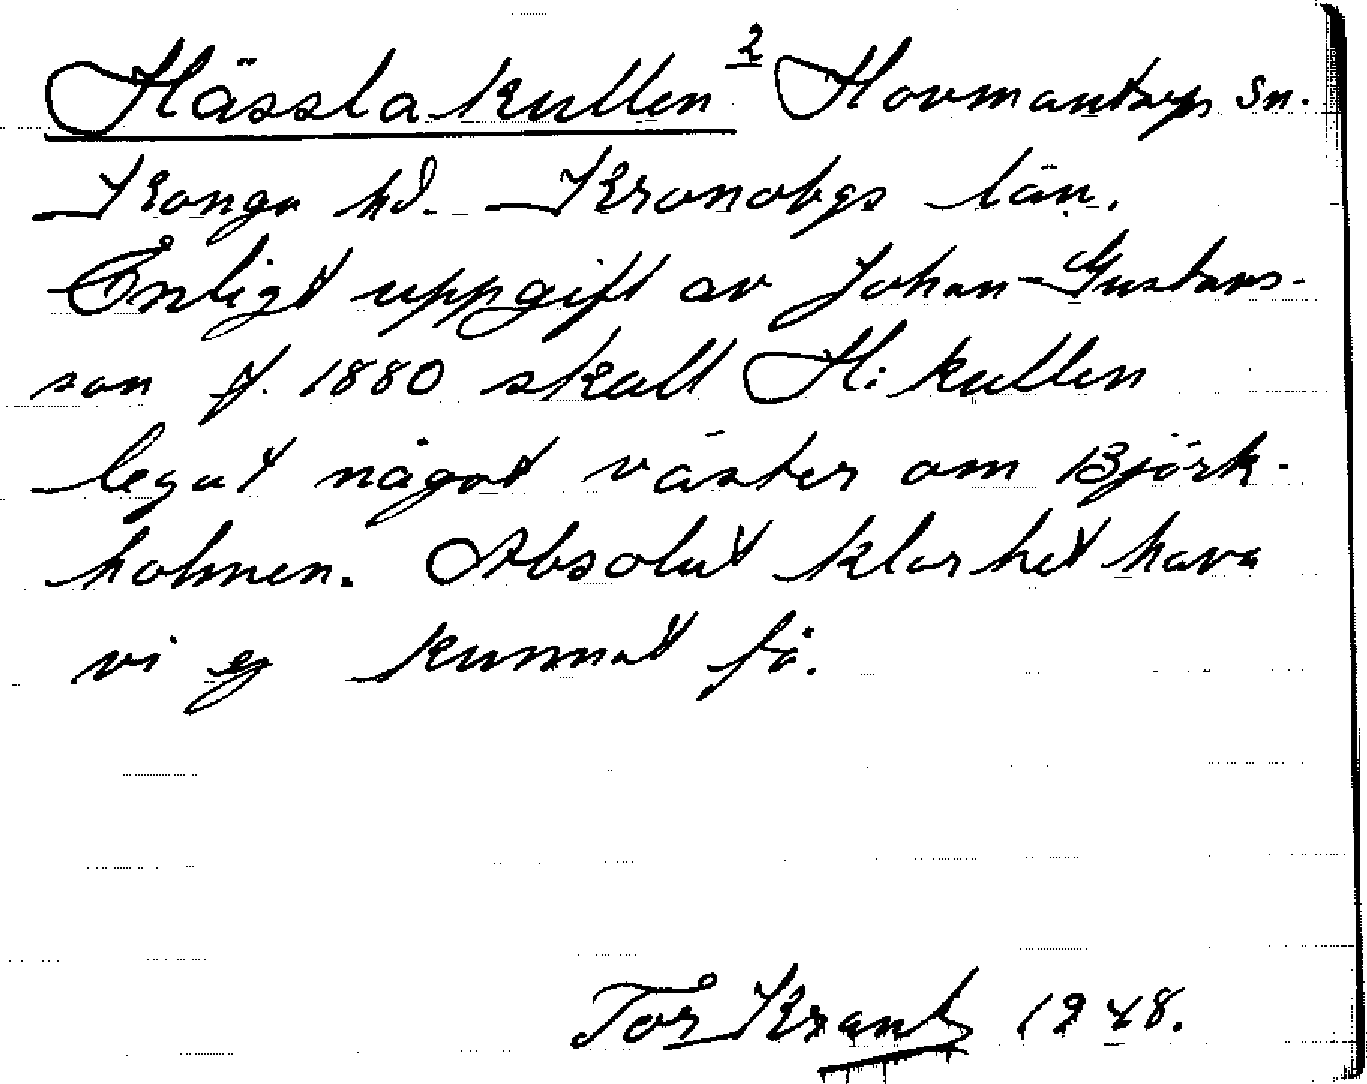 Hässlakullen 2 Hovmantorps Sn.
Konga hd. Kronobgs län.
Enligt uppgift av Johan Gustavs-
son f. 1880 skall H: kullen
legat något väster om Björk-
holmen. Absolut klarhet hava
vi ej kunnat få.
Tor Krantz 1948.